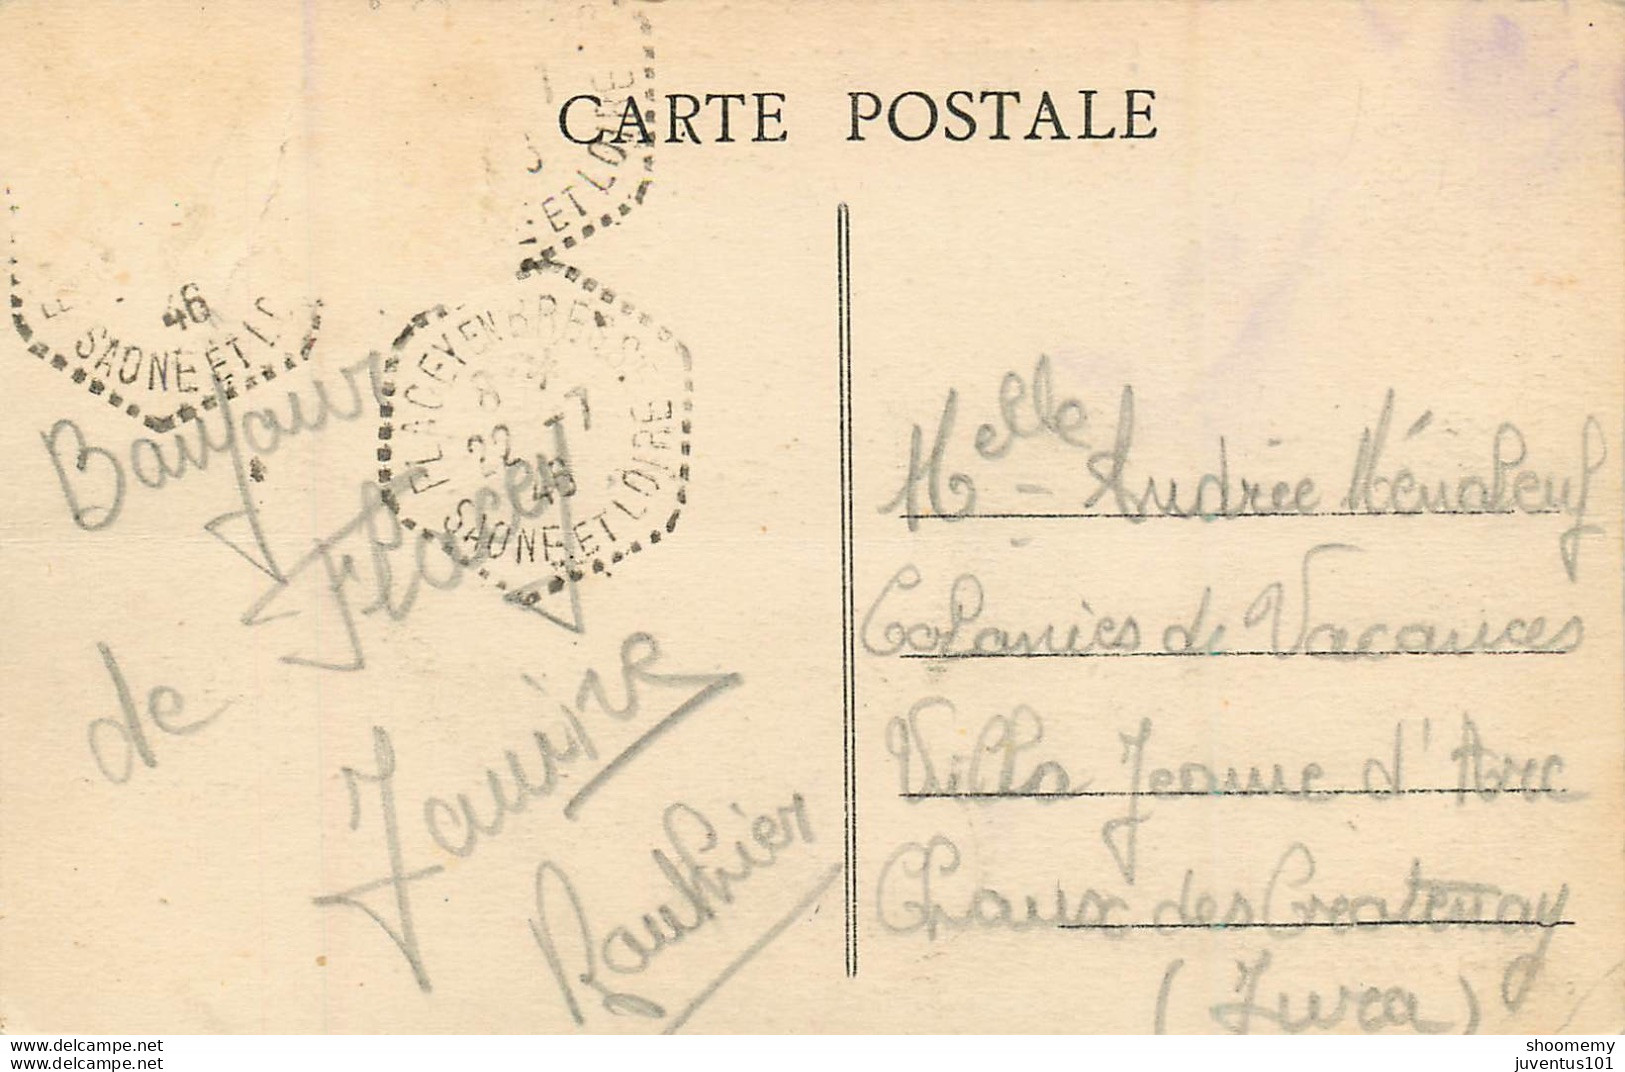 CARTE POSTALE
ET LOIRE
46
SAONE ET LO
PLACEY EN BRESSE
8 - *
22 - 7
46
SAONE ET LOIRE
Bonjour
de Flacey
Janvire
Gauthier
Melle - Andrée
Colonies de Vacances
Villa Jeanne d'Arc
Chaux des Crotenay
(Jura)
www.delcampe.net
www.delcampe.net
shoomemy
juventus101